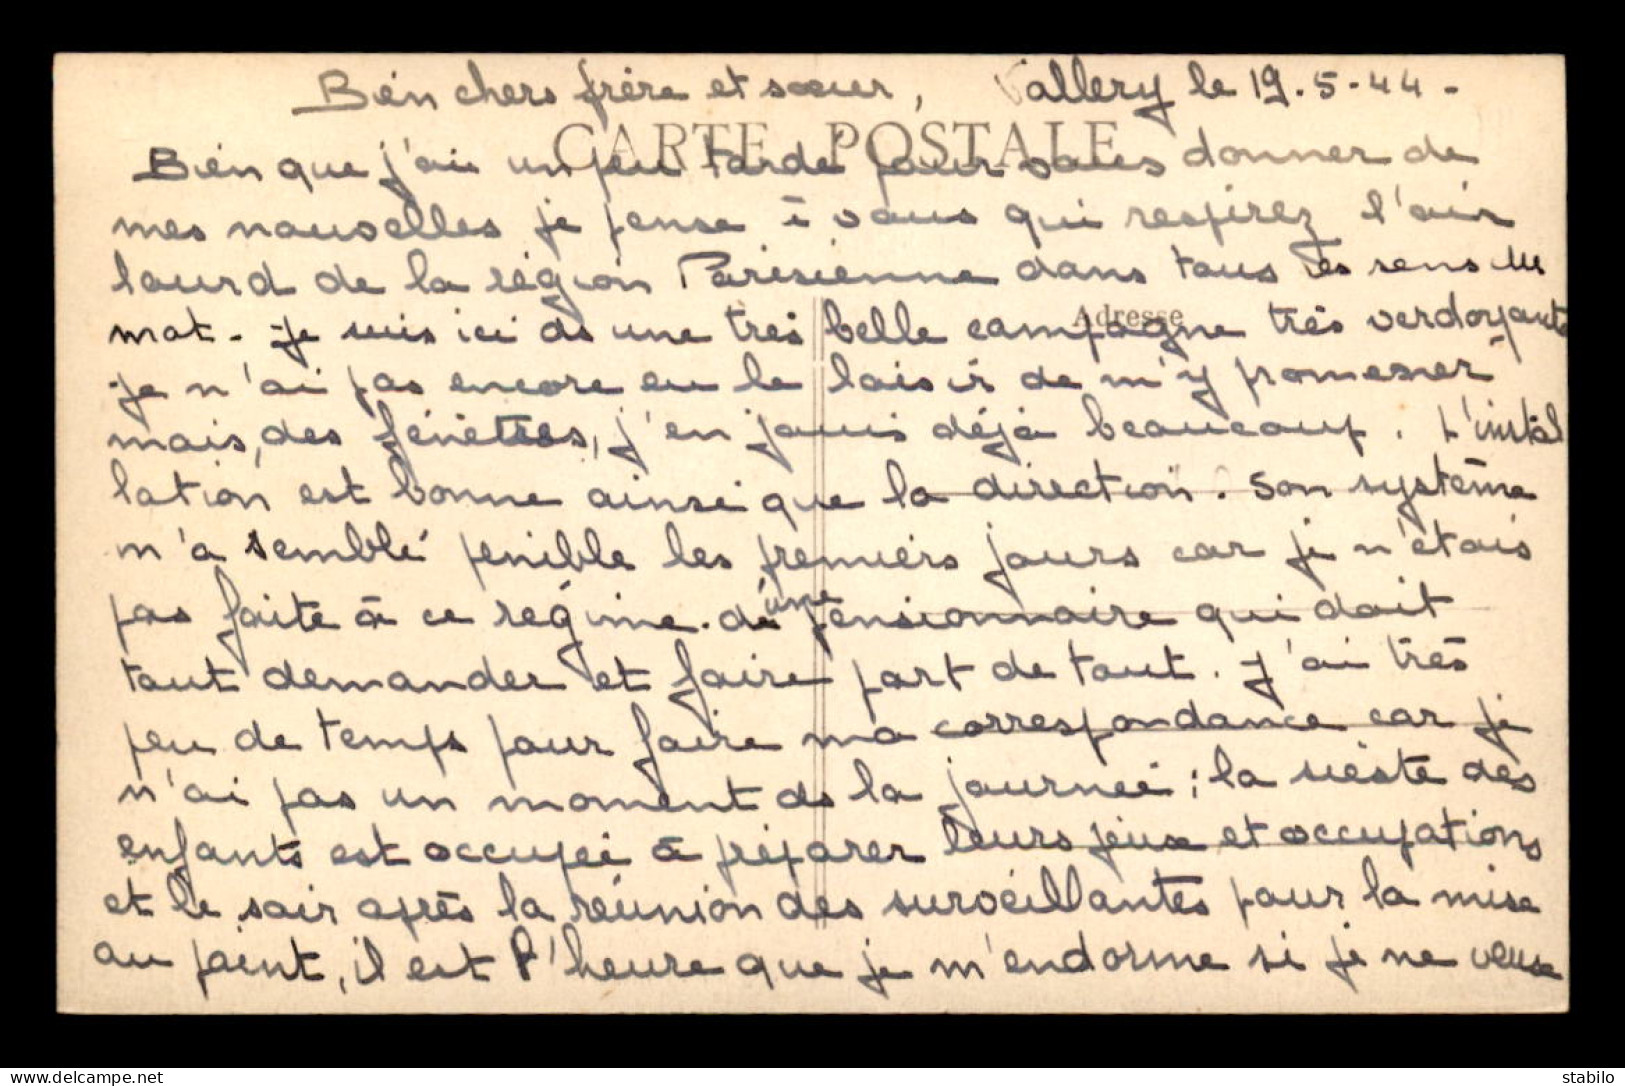 Bien chers frère et sœur, Vallery le 19.5.44.
CARTE POSTALE
Bien que j'ai un peu tardé pour vous donner de
mes nouvelles je pense à vous qui respirez l'air
lourd de la région Parisienne dans tous les sens du
mot. Je suis ici ds une très belle campagne très verdoyante
Adresse
je n'ai pas encore eu le loisir de m'y promener
mais, des fenêtres, j'en jouis déjà beaucoup. L'instal
lation est bonne ainsi que la direction. Son système
m'a semblé pénible les premiers jours car je n'étais
pas faite à ce régime. d'une pensionnaire qui doit
tout demander et faire part de tout. J'ai très
peu de temps pour faire ma correspondance car je
n'ai pas un moment ds la journée ; la sieste des
enfants est occupée à préparer leurs jeux et occupations
et le soir après la réunion des surveillantes pour la mise
au point, il est l'heure que je m'endorme si je ne veux
stabilo